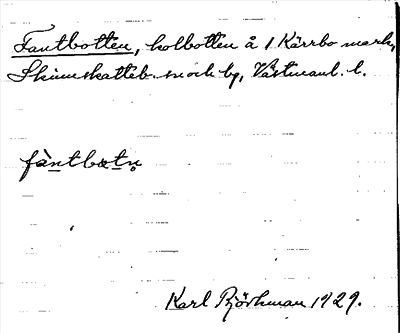 Fantbotten, kolbotten å 1 Kärrbo mark,
Skinnskatteb. sn och bg, Västmanl. l.
fàntbɷtn̥
Karl Björkman 1929.